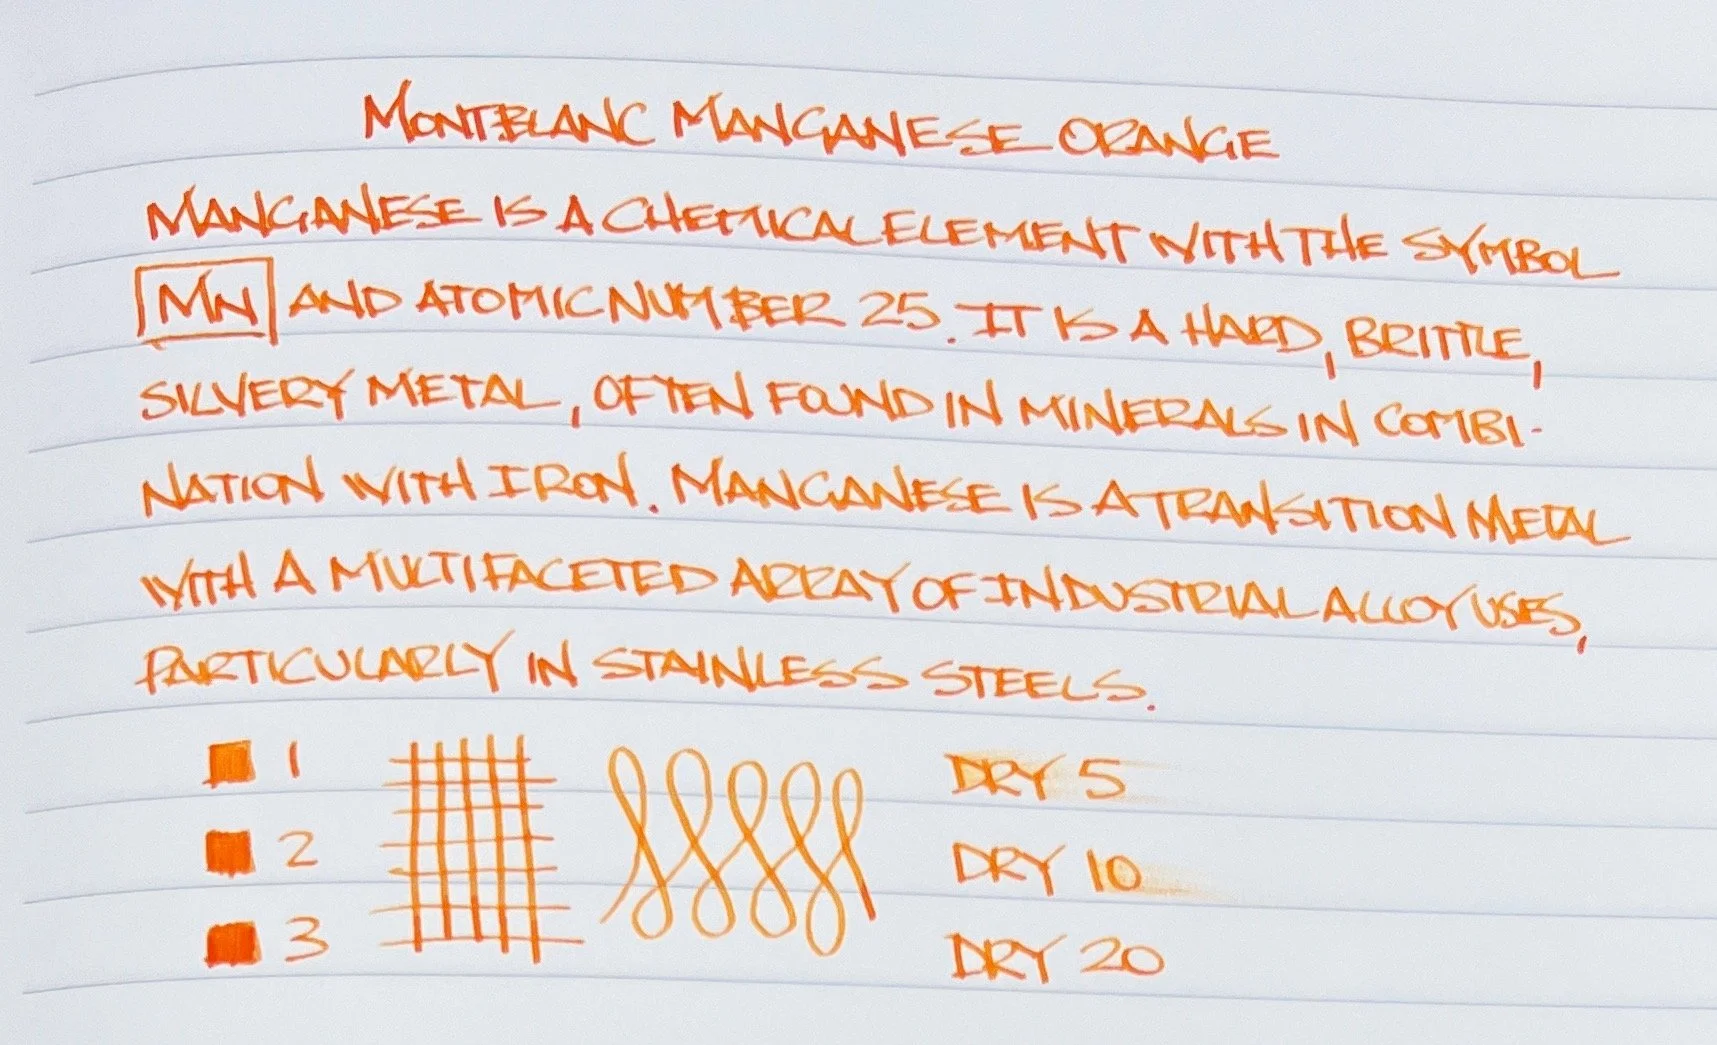 MONTBLANC MANGANESE ORANGE
MANGANESE IS A CHEMICAL ELEMENT WITH THE SYMBOL
MN AND ATOMIC NUMBER 25. IT IS A HARD, BRITTLE,
SILVERY METAL, OFTEN FOUND IN MINERALS IN COMBI-
NATION WITH IRON. MANGANESE IS A TRANSITION METAL
WITH A MULTIFACETED ARRAY OF INDUSTRIAL ALLOY USES,
PARTICULARLY IN STAINLESS STEELS.
1 DRY 5
2 DRY 10
3 DRY 20